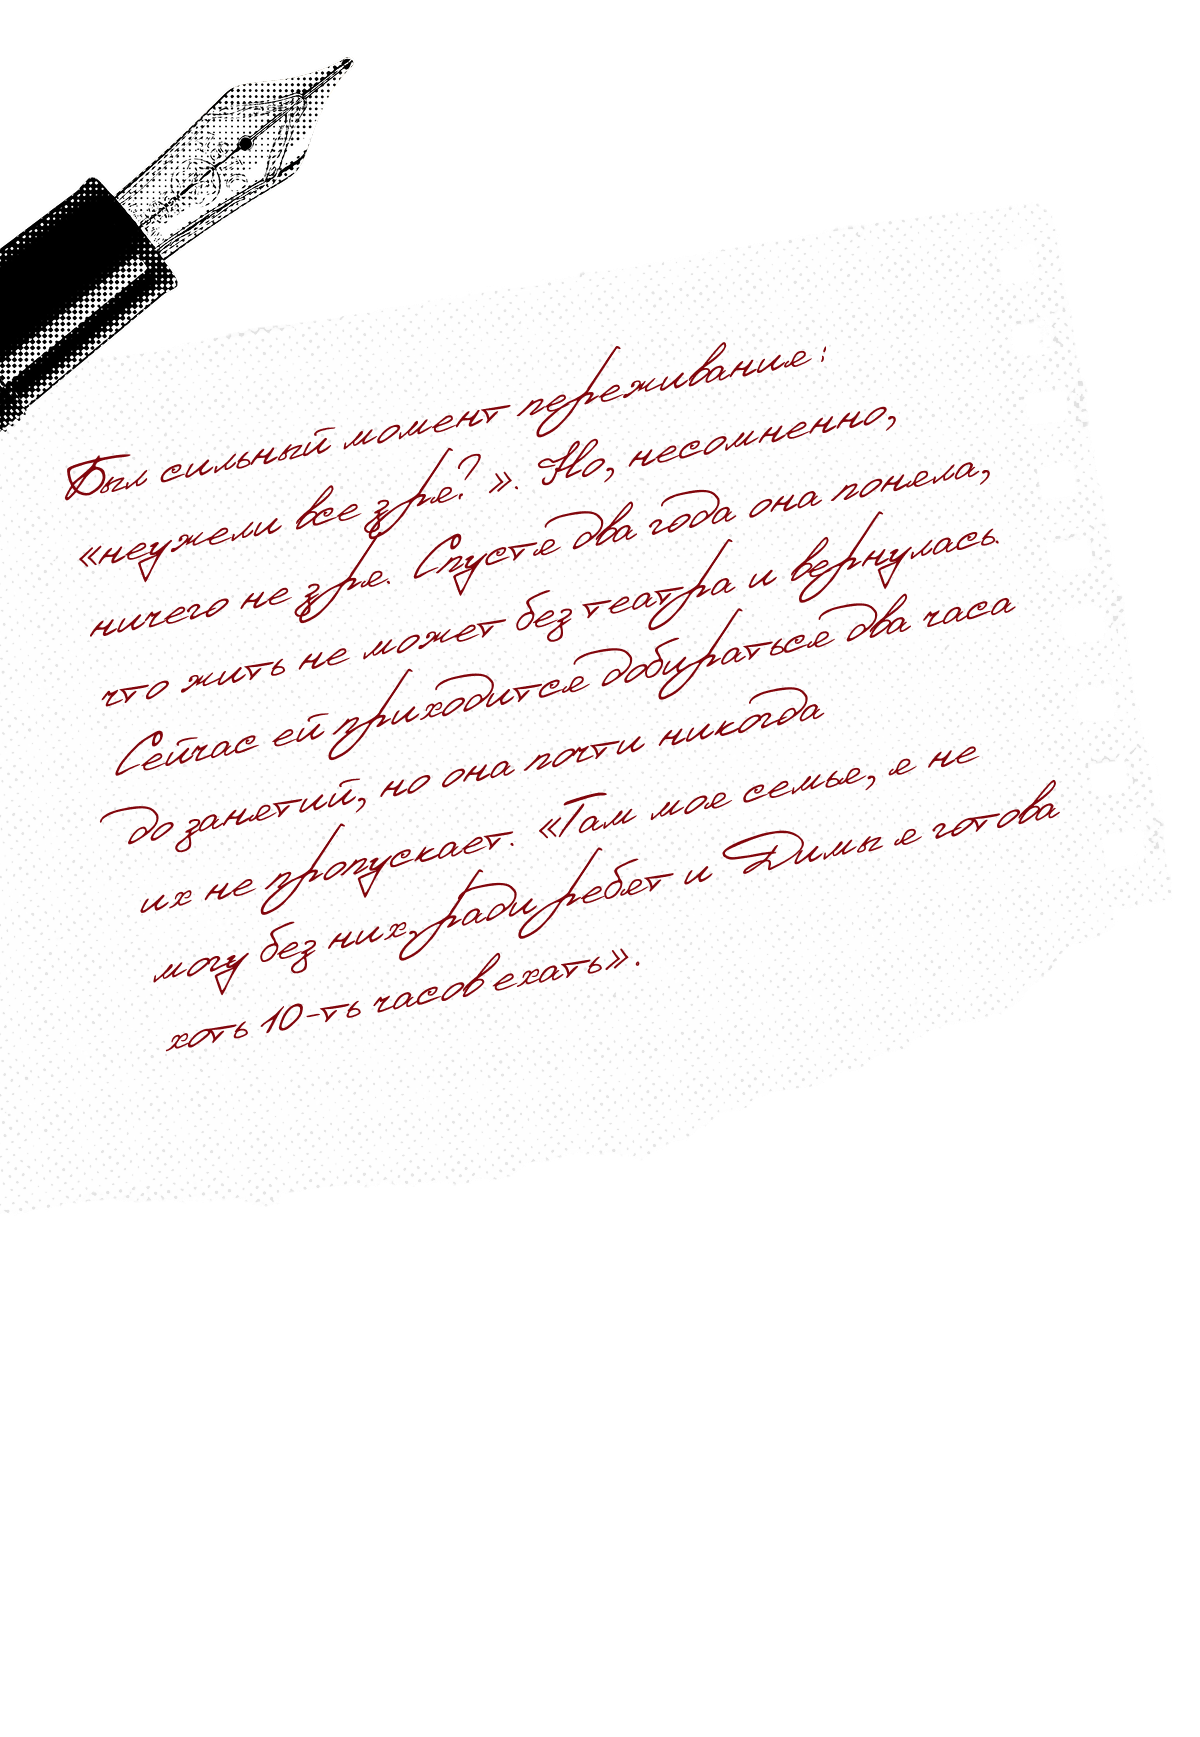 Был сильный момент переживания:
«неужели все зря? ». Но, несомненно,
ничего не зря. Спустя два года она поняла,
что жить не может без театра и вернулась.
Сейчас ей приходится добираться два часа
до занятий, но она почти никогда
их не пропускает. «Там моя семья, я не
могу без них, ради ребят и Димы я готова
хоть 10-ть часов ехать».